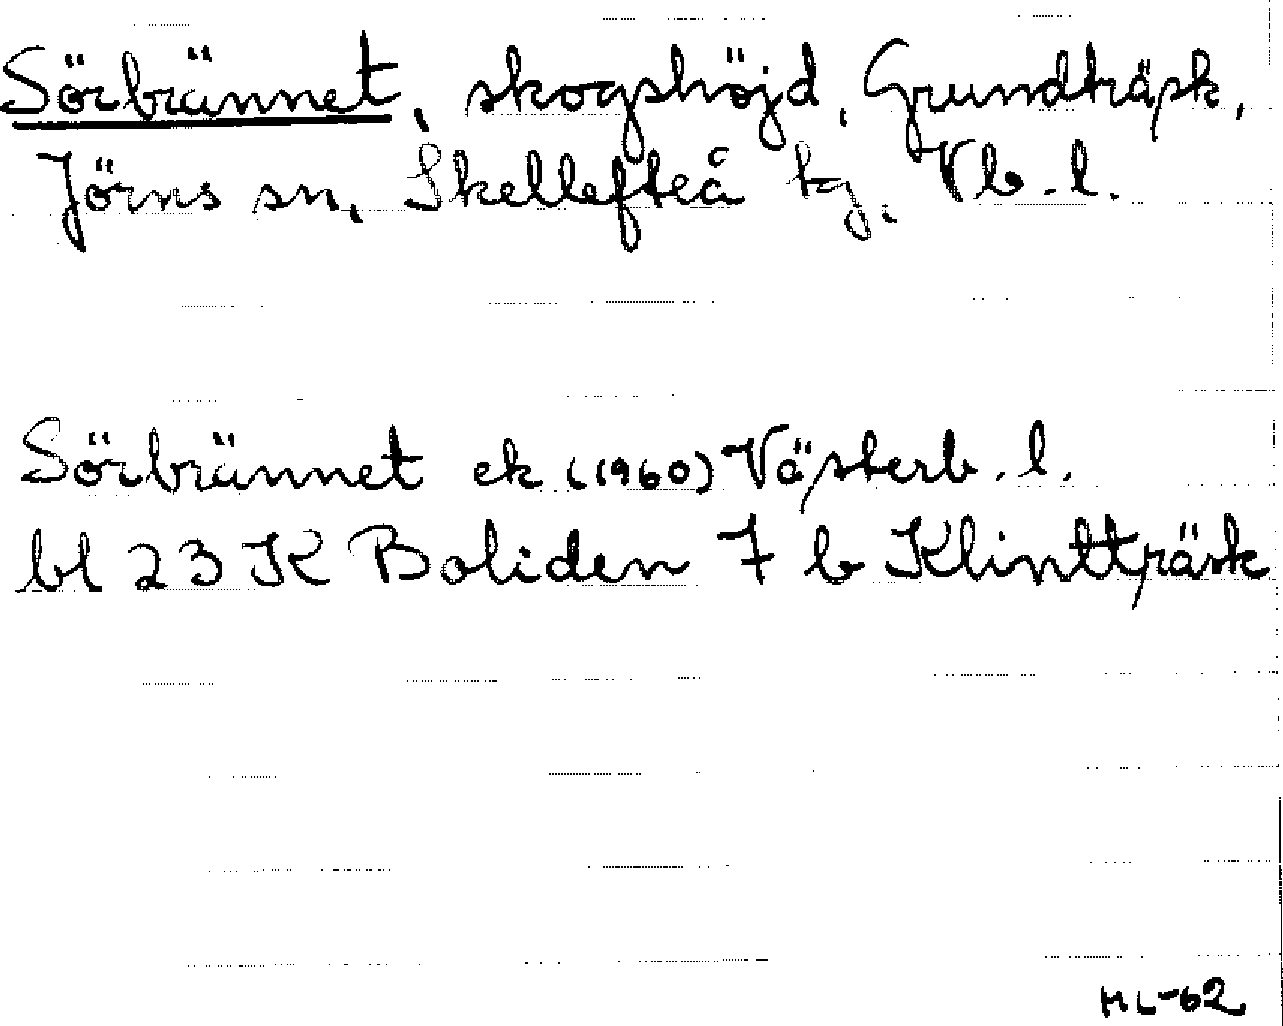 Sörbrännet, skogshöjd, Grundträsk,
Jörns sn, Skellefteå tg. Vb. l.
Sörbrännet ek (1960) Västerb. l.
bl 23 K Boliden 7 b Klintträsk
ML-62